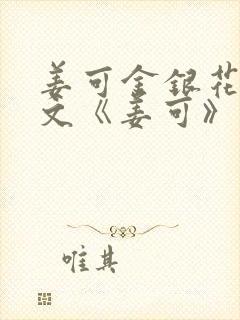 姜可金银花
文《姜可》
唯其